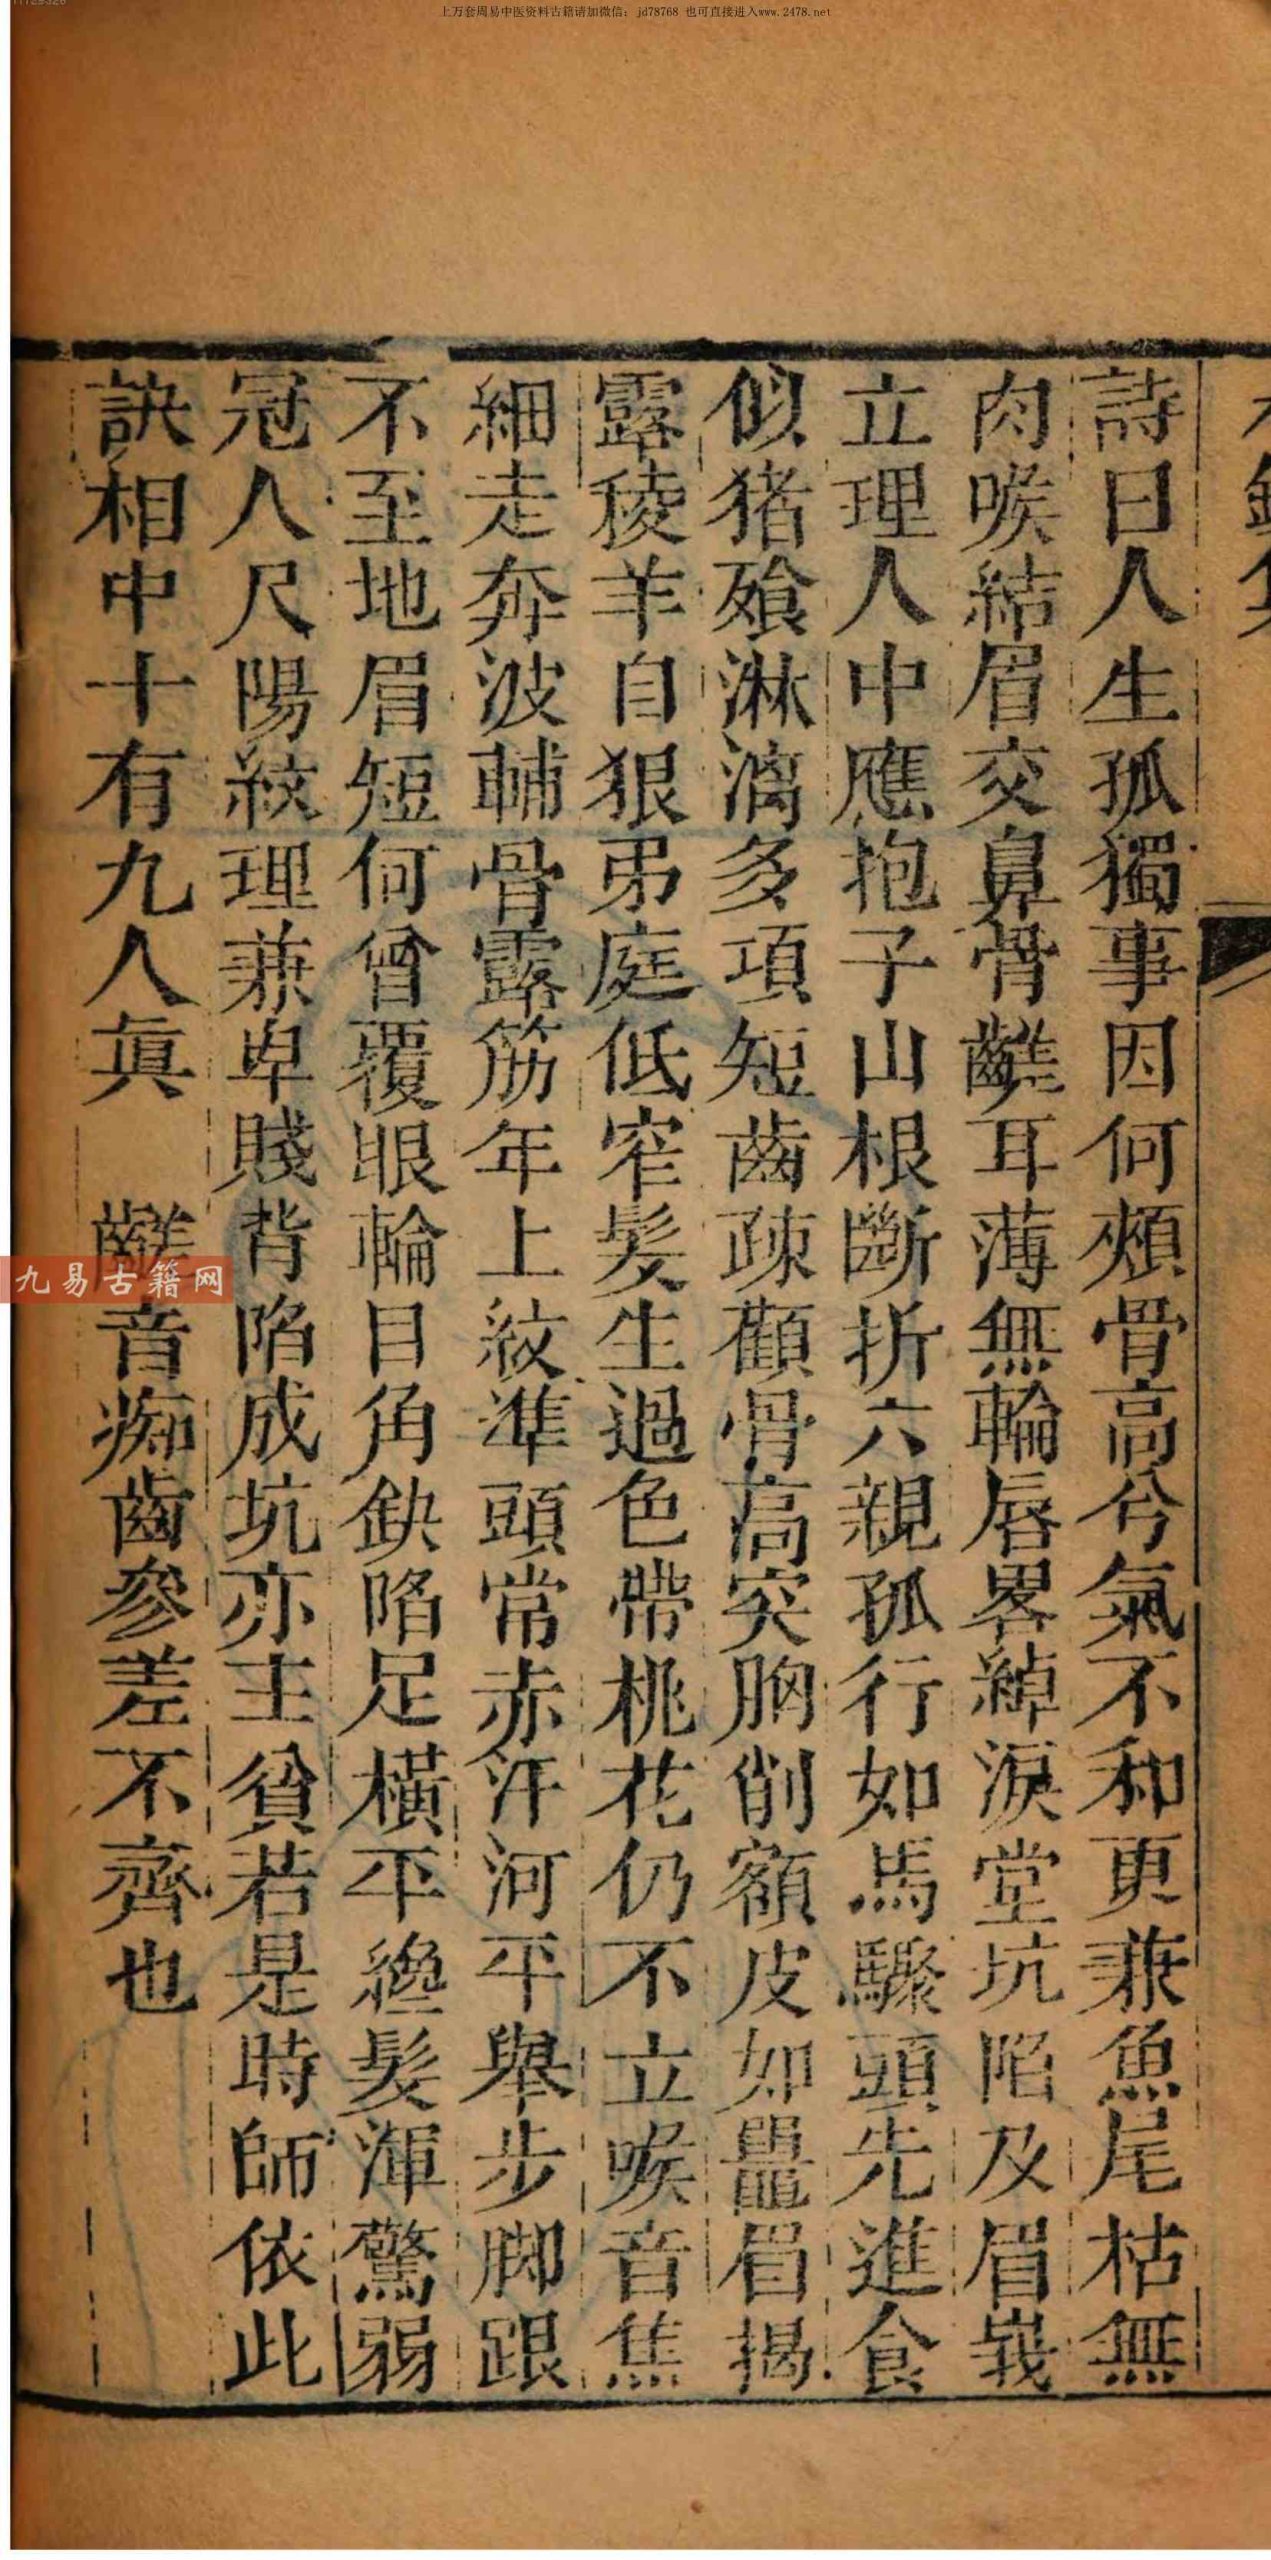 上万套周易中医资料古籍请加微信：jd78768 也可直接进入www.2478.net
詩曰人生孤獨事因何頰骨高兮氣不和更兼魚尾枯無
肉喉結眉交鼻骨齹耳薄無輪唇畧綽淚堂坑陷及眉峩
立理人中應抱子山根斷折六親孤行如馬驟頭先進食
似猪飡淋漓多項短齒疎顴骨高突胸削額皮如鼉眉揭
露稜羊自狠弟庭低窄髮生過色帶桃花仍不立喉音焦
細走奔波輔骨露筋年上紋準頭常赤汗河平舉步脚跟
不至地眉短何曾覆眼輪目角缺陷足橫平纔髮渾驚弱
冠人尺陽紋理兼卑賤背陷成坑亦主貧若是時師依此
訣相中十有九人眞 齹音痴齒參差不齊也
九易古籍网